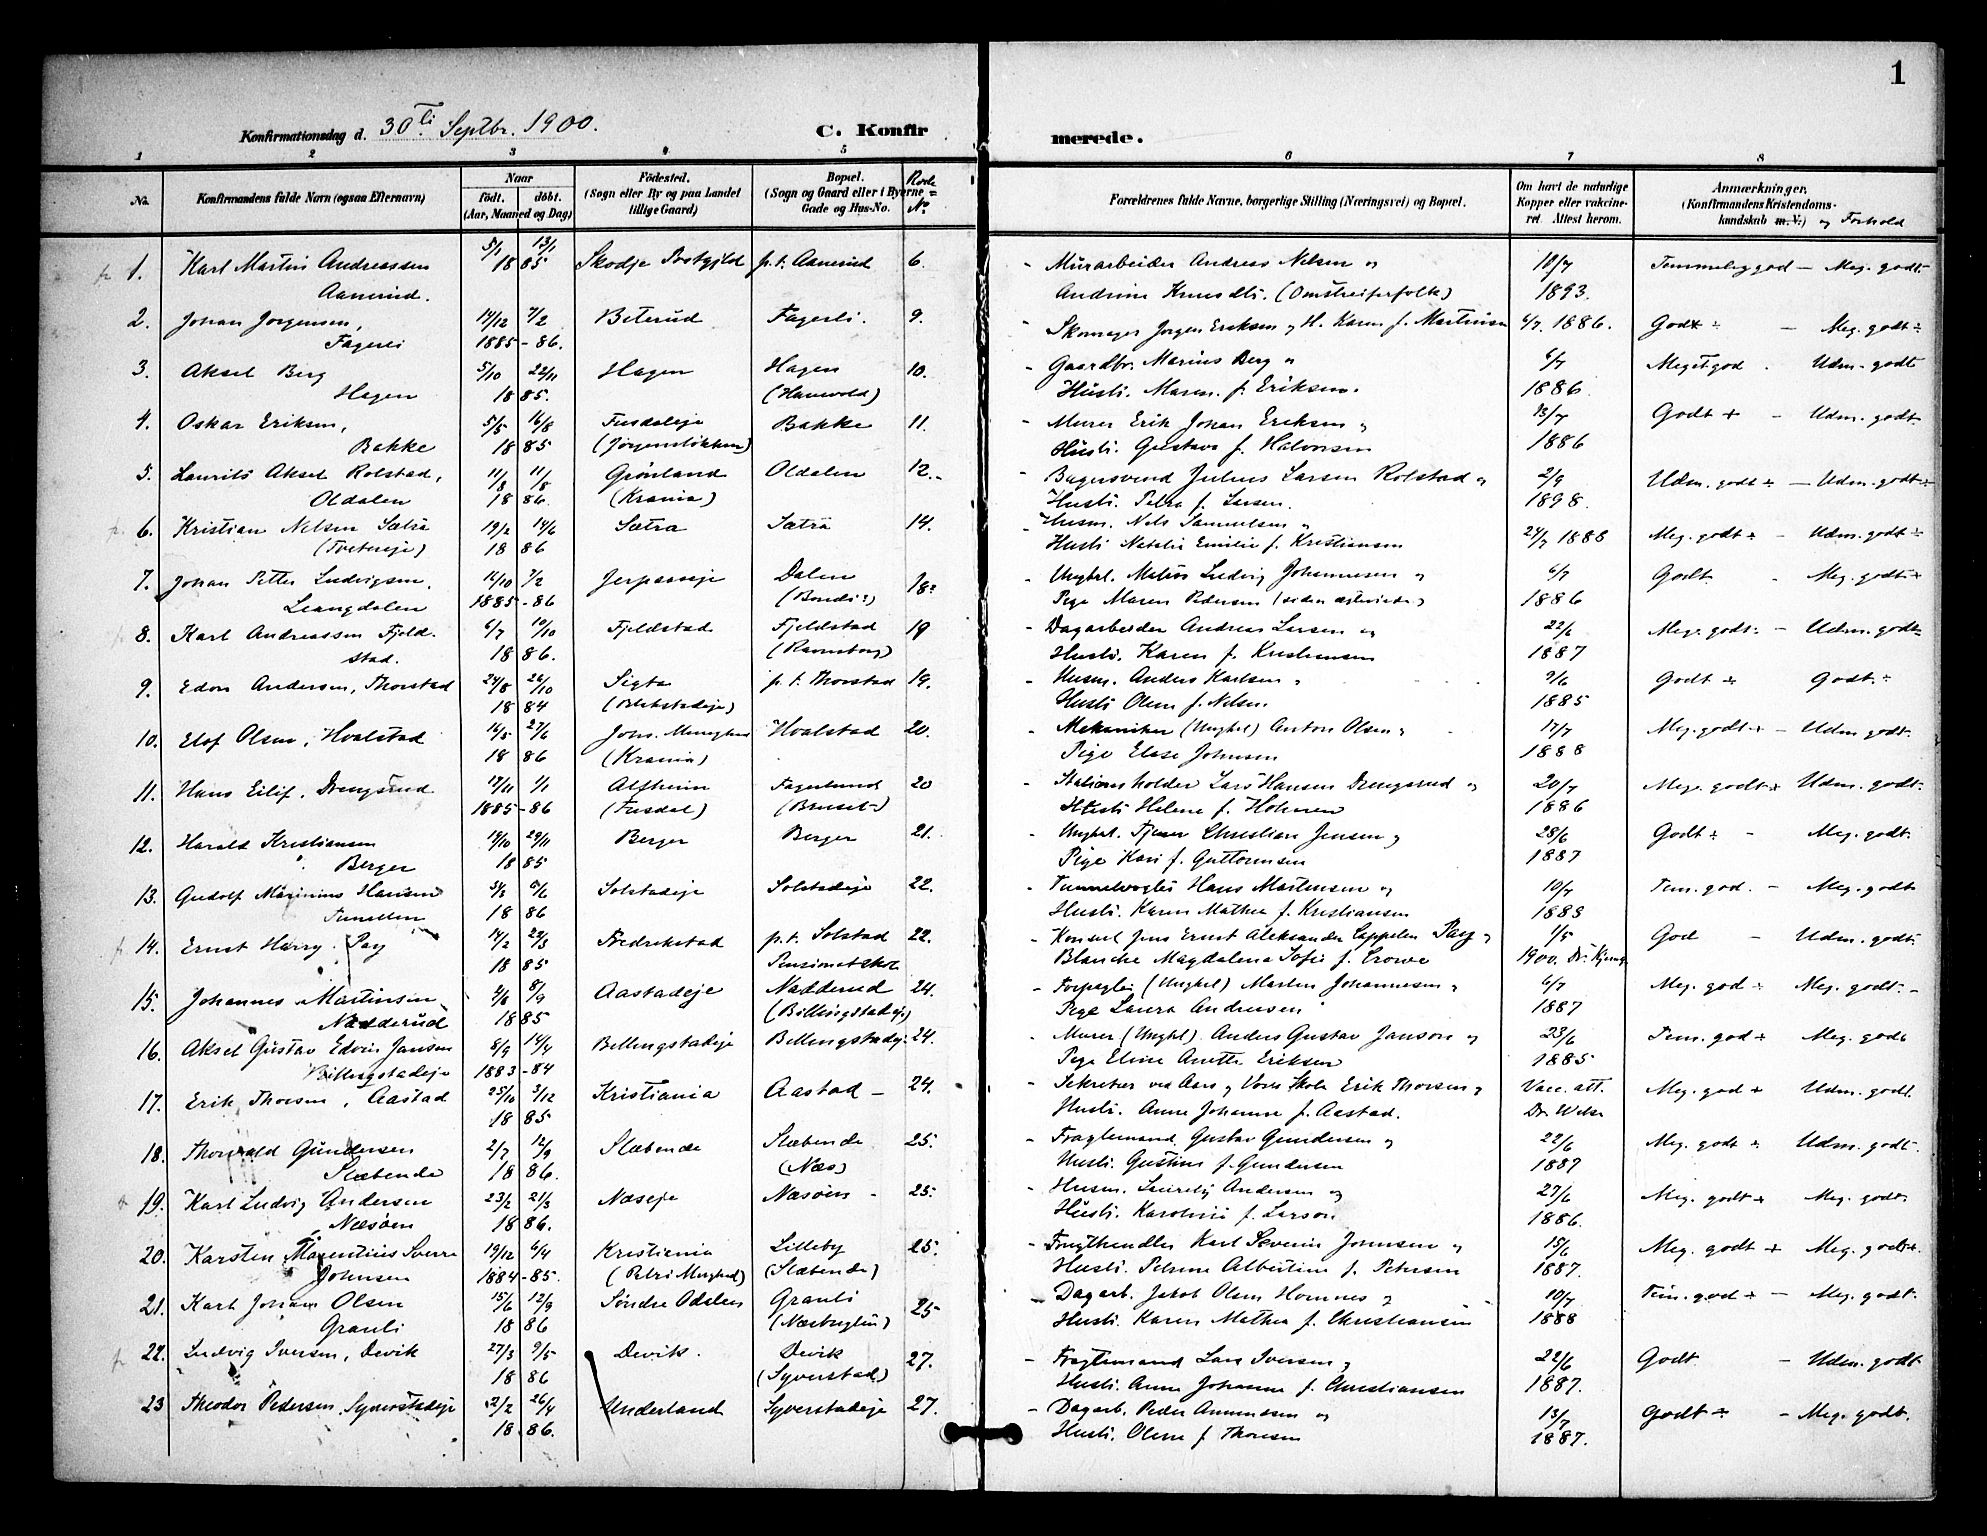 1
Konfirmationsdag d. 30te Septbr. 1900.
C. Konfirmerede.
1 2 3 4 5 6 7 8
No. Konfirmandens fulde Navn (ogsaa Efternavn) Naar födt. döbt. (Aar, Maaned og Dag) Födested. (Sogn eller By og paa Landet tillige Gaard) Bopæl. (Sogn og Gaard eller i Byerne Gade og Hus-No. Rode No. Forældrenes fulde Navne, borgerlige Stilling (Næringsvei) og Bopæl. Om havt de naturlige Kopper eller vakcineret. Attest herom. Anmærkninger. (Konfirmandens Kristendomskundskab m. V.) og Forhold
1. Karl Martin Andreassen 5/1 13/1 Skodje Prstgjld p.t. Aanerud 6. - Murarbeider Andreas Nelsen og 10/7 Temmelig god - Meg. godt
Aanerud. 1885 Andrine Knudtli. (Omstreiferfolk) 1893.
2. Johan Jörgensen, 14/12 7/2 Beterud Fagerli. 9. - Skomager Jörgen Eriksen og H. Karen f. Martinsen 6/7. 1886. Godt - Meg. godt
Fagerli 1885-86.
3. Aksel Berg 5/10 22/11 Hagen Hagen 10. - Gaardbr. Marius Berg og 6/7 Meget god - Udm. godt
Hagen 1885. (Hanevold) Husti. Maren f. Eriksen. 1886
4. Oskar Eriksen, 5/5 16/8 Fusdaleje Bakke 11. - Murer Erik Johan Eriksen og 13/7 Godt + - Udm. godt
Bakke 1885 (Jörgenslökken) Husti. Gustava f. Halvorsen 1886
5. Laurits Aksel Rolstad, 11/8 11/8 Grönland Oldalen 12. - Bagersvend Julius Larsen Rolstad og 2/9 Udm. godt - Udm. godt
Oldalen 1886. (Krania) Husti. Petra f. Larsen. 1898.
6. Kristian Nelsen Sætra 19/2 14/6 Sætra Sætra 14. - Husm. Nels Samuelsen og 24/7 1888 Meg. godt - Udm. godt
(Tveterеje) 1886 Husti Natalie Emilie f. Kristiansen
7. Johan Petter Ludvigsen, 16/10 7/2 Jerpaaseje Dalen 18. - Ungkl. Matias Ludvig Johannesen og 6/7 Godt - Meg. godt
Leangdalen 1885-86 (Bondi) Pige Maren Pedersen 1886
8. Karl Andreassen Fjeld- 6/7 10/10 Fjeldstad Fjeldstad 19 - Dagarbeider Andreas Larsen og 22/6 Meg. godt - Udm. godt
stad. 1886. (Ravnsborg) Husti. Karen f. Kristiansen 1887
9. Edon Andersen, Thorstad 24/8 26/10 Sigta p.t. Thorstad 19. - Husm. Anders Karlsen og 9/6 Godt Godt
1884 Husti Olene f. Nelsen. 1885
10. Elof Olsen, Hvalstad 16/5 27/6 Joh. Menighed Hvalstad 20. - Mekaniker (Ungkl) Anton Olsen og 17/7 Meg. godt - Udm. godt.
1886 (Krania) Pige Elase Johnsen 1888
11. Hans Eilif. Drengsrud 17/11 1/1 Alfheim Fagerlund 20 - Stationsholder Lars Hansen Drengsrud og 20/7 Meg. godt Udm. godt.
1885-86 (Fusdal) Husti Helene f. Holmen 1886
12. Harald Kristiansen 14/10 29/11 Berger Berger 21. - Ungkl. Tjener Christian Jensen og 28/6 Godt - Meg. godt.
Berger 1885 Pige Kari f. Guttormsen 1887
13. Gudolf Marinius Hansen 5/3 6/6 Solstadeje Solstadeje 22. - Tunnelvogter Hans Martinsen og 10/7 Tem. god. - Meg. godt
Tunellen 1886 Husti. Karen Mathea f. Kristiansen 1888
14. Ernst Harry Pay 14/2 22/3 Fredrikstad p.t. Solstad 22. - Konsul Jens Ernst Aleksander Cappelen Pay og 1/5 God - Udm. godt.
1885 Pensionatskole Blanche Magdalena Sofie f. Crowe 1900. Dr.
15. Johannes Martinsen 4/6 8/9 Aastadeje Nadderud 24. - (Ungkl) Martin Johannesen og 6/7 Meg. god Meg. godt.
Nadderud 1885 (Billingstadeje) Pige Laura Andresen 1887
16. Aksel Gustav Edvin Janson 8/9 14/4 Billingstadeje Billingstadej. 24. - Murer (Ungkl) Anders Gustav Janson og 23/6 Tem. god Meg. godt
Billingstadeje 1883-84 Pige Eline Anette Eriksen 1885
17. Erik Thorsen, Aastad 25/10 3/12 Kristiania Aastad - 24. - Sekretær ved Aars og Voss Skole Erik Thorsen og Vacc. att. Meg. god Udm. godt.
1885 Husti. Anne Johanne f. Aastad. Dr.
18. Thorvald Gundersen 2/7 12/9 Slæbende Slæbende 25. - Fragtemand Gustav Gundersen og 22/6 Meg. godt Udm. godt.
Slæbende 1886. (Næs) Husti. Gustine f. Gundersen 1887
19. Karl Ludvig Andersen 23/2 21/3 Næseje Næsöen - 25. - Husm. Andersen og 27/6 Meg. godt Meg. godt.
Næsöen 1886. Husti. Karoline f. Larson 1886.
20. Karsten Marentius Sverre 19/12 6/4 Kristiania Lilleby 25. - Karl Severin Johnsen og 15/6 Meg. godt Meg. godt.
Johnsen 1884-85. (Petri Mnghed) (Slæbende) Husti. Petrine Albertine f. Petersen 1887.
21. Karl Johan Olsen 15/6 12/9 Söndre Odalen Granli 25 - Dagarb. Jakob Olsen Homnes og 10/7 Tem. god - Meg. godt.
Granli 1886 Husti. Karen Mathea f. Christiansen 1888
22. Ludvig Iversen, Devik 27/3 9/5 Devik. Devik 27. - Fragtemand Lars Iversen og 22/6 Godt - Udm. godt
1886 (Syverstad) Husti. Anne Johanne f. Christiansen 1887.
23 Theodor Pedersen, Syverstadeje 2/2 26/4 Underland Syverstadeje 27. - Dagarb. Peder Amundsen og 13/7 Godt - Meg. godt.
1886. Husti. Olene f. Thoresen 1887.